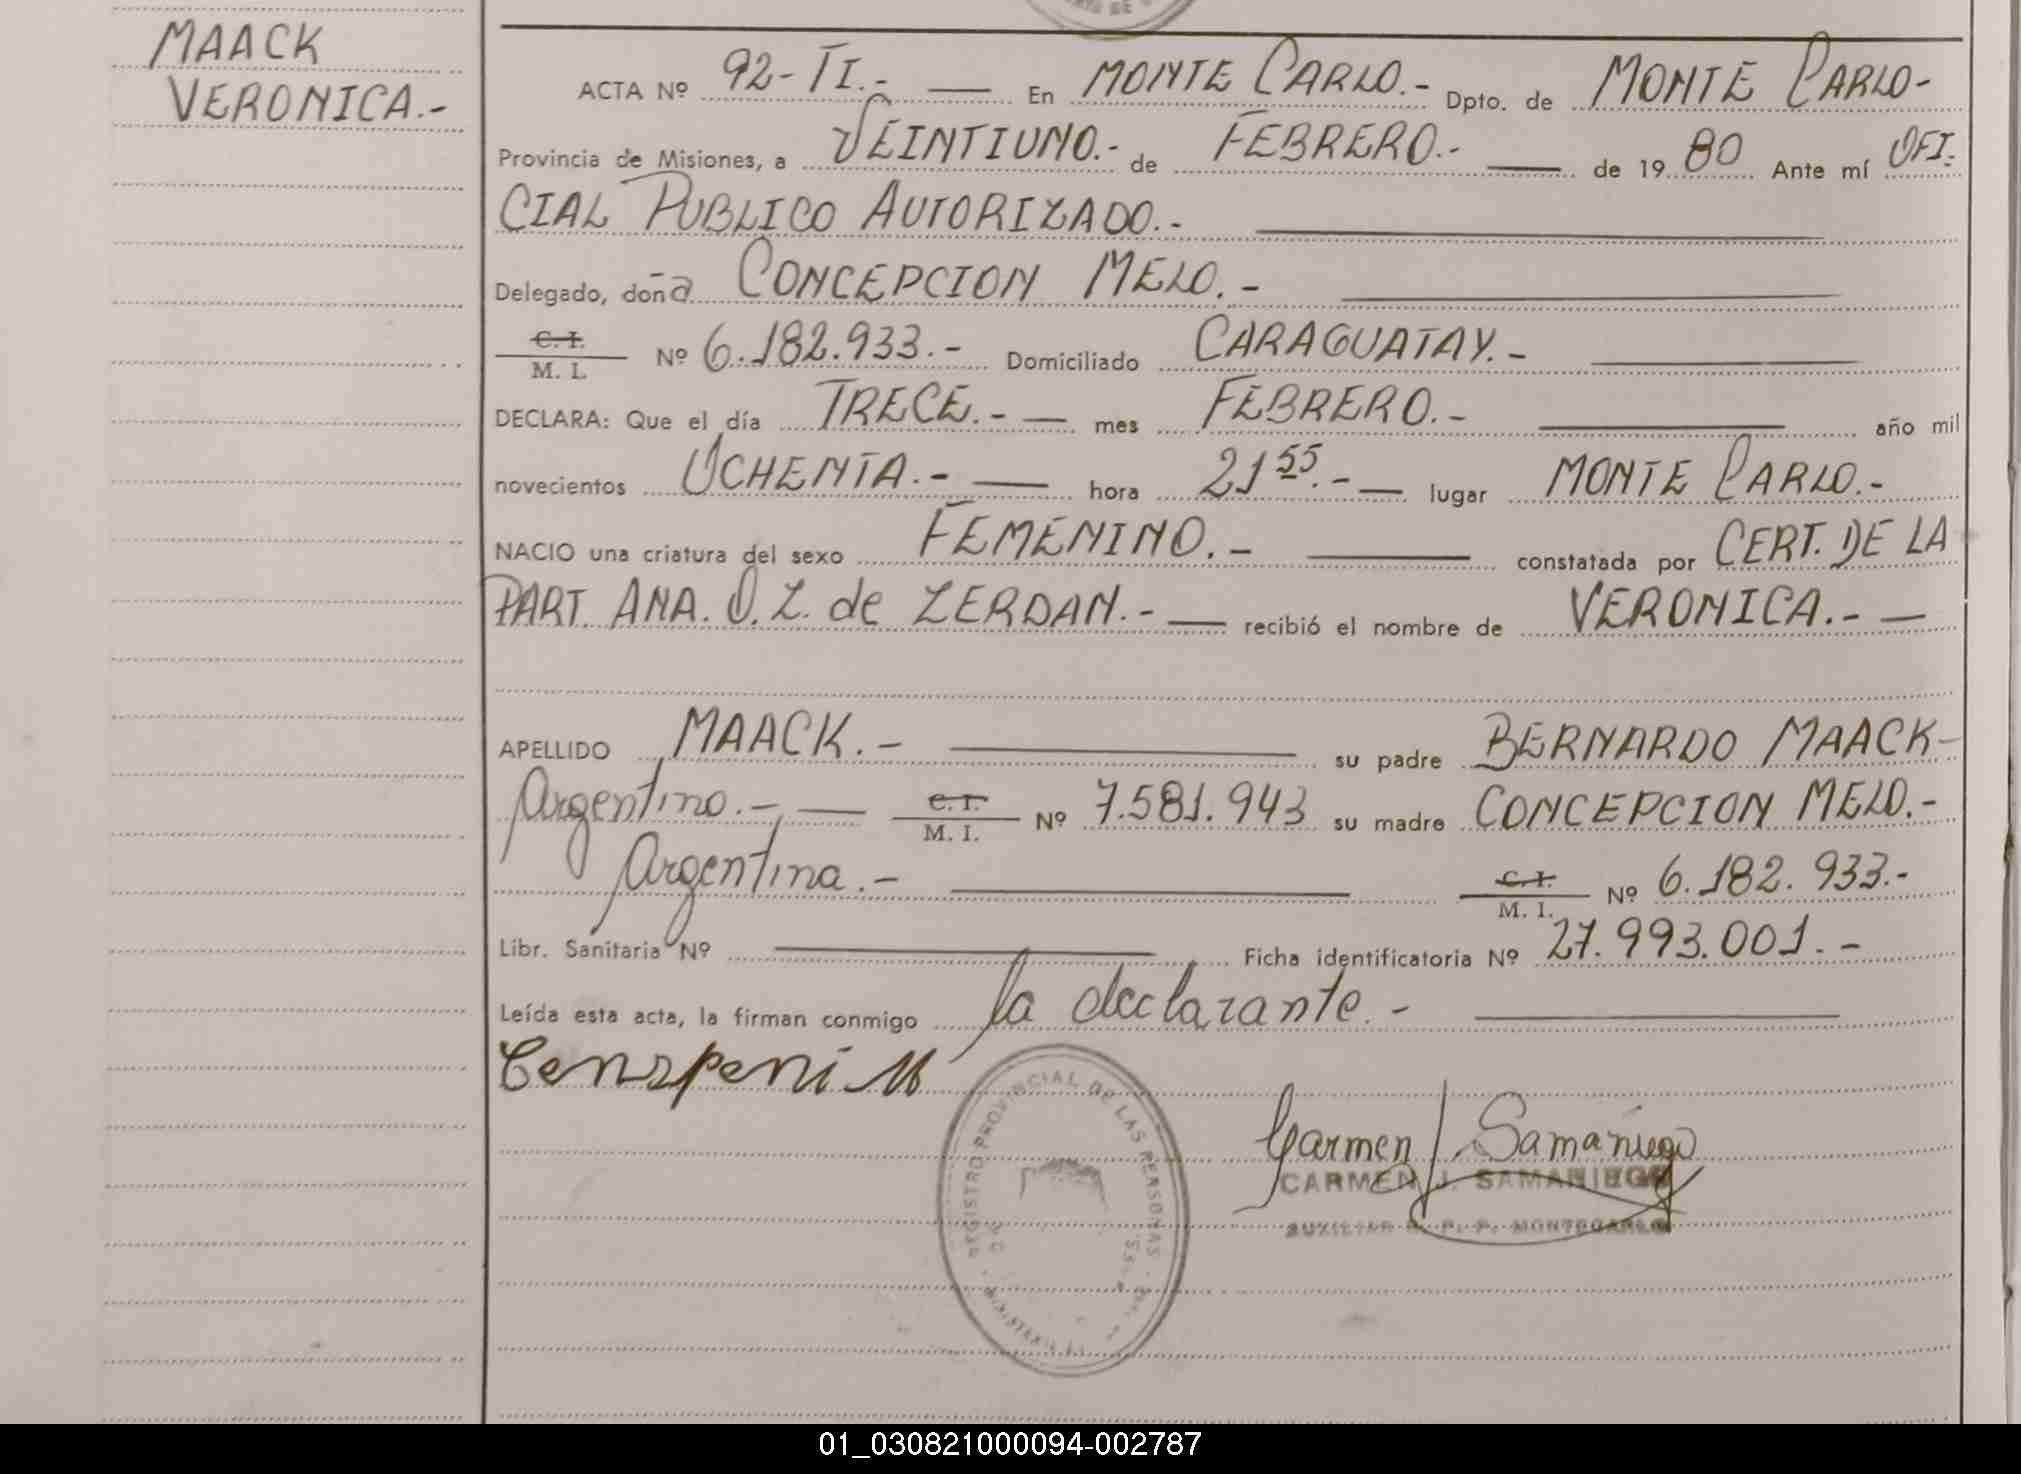 MAACK
VERONICA.-
ACTA Nº 92-TI.- En MONTE CARLO.- Dpto. de MONTE CARLO-
Provincia de Misiones, a VEINTIUNO.- de FEBRERO.- de 1980 Ante mí OFI-
CIAL PUBLICO AUTORIZADO.-
Delegado, doña CONCEPCION MELO.-
C. I.
M. I. Nº 6.182.933.- Domiciliado CARAGUATAY.-
DECLARA: Que el día TRECE.- mes FEBRERO.- año mil
novecientos OCHENTA.- hora 21 55.- lugar MONTE CARLO.-
NACIO una criatura del sexo FEMENINO.- constatada por CERT. DE LA
PART. ANA. O. Z. de ZERDAN.- recibió el nombre de VERONICA.-
APELLIDO MAACK.- su padre BERNARDO MAACK-
Argentino.- C. I. M. I. Nº 7.581.943 su madre CONCEPCION MELO.-
Argentina.- C. I. M. I. Nº 6.182.933.-
Libr. Sanitaria Nº Ficha identificatoria Nº 27.993.001.-
Leída esta acta, la firman conmigo la declarante.-
REGISTRO PROVINCIAL DE LAS PERSONAS
Carmen J. Samaniego
CARMEN J. SAMANIEGO
AUXILIAR R. P. P. MONTECARLO
01_030821000094-002787